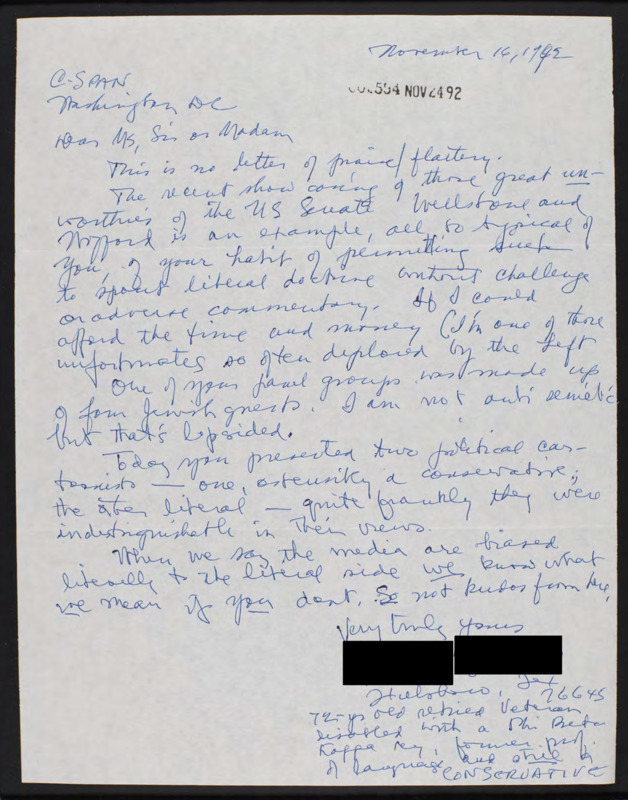 November 16, 1992
C-SPAN
002554 NOV 24 92
Washington DC
Dear Ms, Sir or Madam
This is no letter of praise/flattery.
The recent show casing of those great un-
worthies of the US Senate Wellstone and
Wofford is an example, all to typical of
you, of your habit of permitting such
to spout liberal doctrine without challenge
or adverse commentary. If I could
afford the time and money (I'm one of those
unfortunates so often deplored by the Left
One of your panel groups was made up
of four Jewish guests. I am not anti semetic
but that's lopsided.
Today you presented two political car-
toonists — one, ostensibly a conservative;
the other liberal — quite frankly they were
indistinguishable in their views.
When we say the media are biased
literally to the liberal side we know what
we mean if you dont. So not kudos from me,
Very truly yours
Hillsboro, Tex
76645
72 yr old retired Veteran
disabled with a Phi Beta
Kappa key, former prof.
of language and still a
CONSERVATIVE